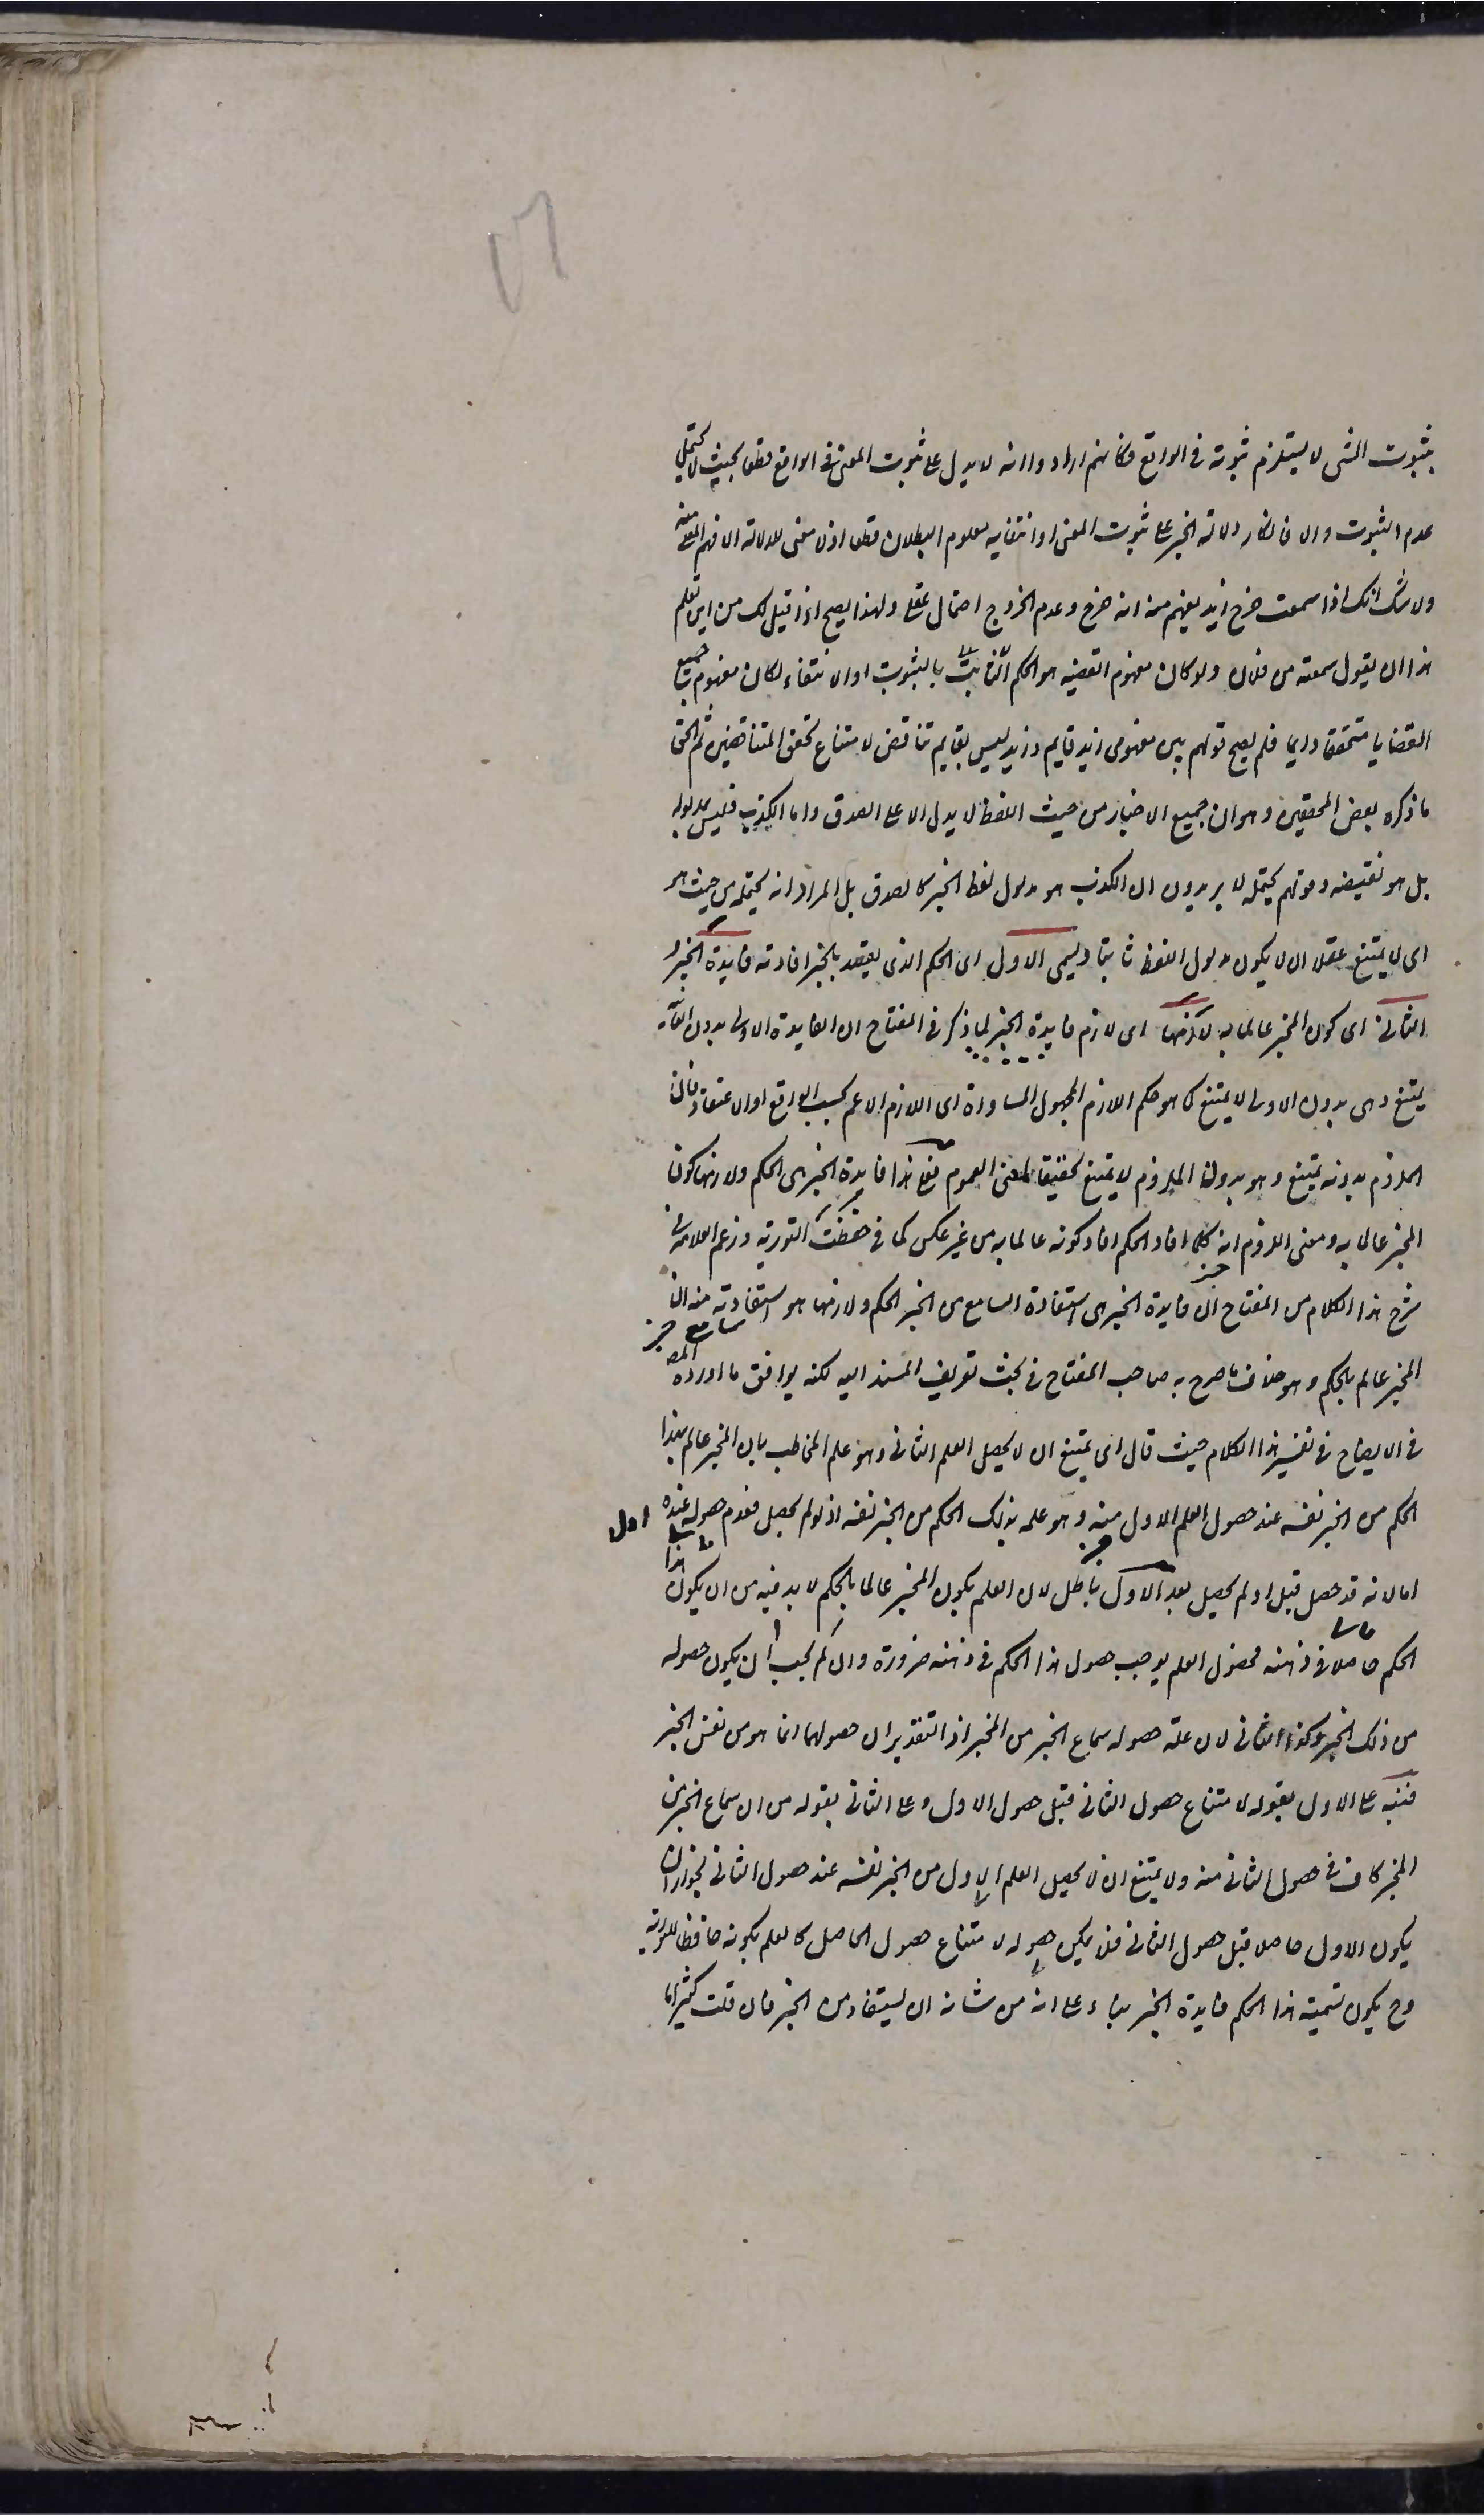 بثبوت الشی لا یستلزم ثبوته فی الواقع فکانهم ارادوا انه لا یدل علی ثبوت المعنی فی الواقع قطعا بحیث لا یحتمل
عدم الثبوت والا فانکار دلالة الخبر علی ثبوت المعنی او انتفایه معلوم البطلان قطعا اذ لا معنی للدلالة الا فهم المعنی منه
ولا شک انک اذا سمعت خرج زید یفهم منه انه خرج وعدم الخروج احتمال عقلی ولهذا یصح اذا قیل لک من این تعلم
هذا ان یقول سمعته من فلان ولو کان مفهوم القضیه هو الحکم الثابت بالثبوت او الانتفاء لکان مفهوم جمیع
القضایا متحققا دایما فلم یصح قولهم بین مفهومی زید قایم و زید لیس بقایم تناقض لامتناع تحقق المتناقضین ثم الحق
ما ذکره بعض المحققین وهو ان جمیع الاخبار من حیث اللفظ لا یدل الا علی الصدق واما الکذب فلیس بمدلوله
بل هو نقیضه وقولهم یحتمله لا یریدون ان الکذب هو مدلول لفظ الخبر کالصدق بل المراد انه یحتمله من حیث هو
ای لا یمتنع عقلا ان لا یکون مدلول اللفظ ثابتا ویسمی الاول ای الحکم الذی یقصد بالخبر افادته فایدة الخبر و
الثانی ای کون المخبر عالما به لازمها ای لازم فایدة الخبر لما ذکر فی المفتاح ان الفایدة الاولی بدون الثانیه
یمتنع وهی بدون الاولی لا یمتنع کما هو حکم اللازم المجهول المساواة ای اللازم الاعم بحسب الواقع او الاعتقاد فان
الملزوم بدونه یمتنع وهو بدون الملزوم لا یمتنع تحقیقا لمعنی العموم فعلی هذا فایدة الخبر هی الحکم ولازمها کون
المخبر عالما به ومعنی اللزوم انه کلما افاد الحکم افاد کونه عالما به من غیر عکس کما فی حفظت التوریة وزعم العلامة فی
شرح هذا الکلام من المفتاح ان فایدة الخبر هی استفادة السامع من الخبر الحکم ولازمها هو استفادته منه ان
المخبر عالم بالحکم وهو خلاف ما صرح به صاحب المفتاح فی بحث تعریف المسند الیه لکنه یوافق ما اورده المص
فی الایضاح فی تفسیر هذا الکلام حیث قال ای یمتنع ان لا یحصل العلم الثانی وهو علم المخاطب بان المخبر عالم بهذا
الحکم من الخبر نفسه عند حصول العلم الاول منه وهو علمه بذلک الحکم من الخبر نفسه اذ لو لم یحصل فعدم حصوله عنده
اول
اما لانه قد حصل قبل او لم یحصل بعد الاول باطل لان العلم بکون المخبر عالما بالحکم لا بد فیه من ان یکون هذا
الحکم حاصلا فی ذهنه فحصول العلم یوجب حصول هذا الحکم فی ذهنه ضرورة وان لم یجب ان یکون حصوله
من ذلک الخبر وکذا الثانی لان علة حصوله سماع الخبر من المخبر اذ التقدیر ان حصولهما انما هو من نفس الخبر
فنبه علی الاول بقوله لامتناع حصول الثانی قبل حصول الاول وعلی الثانی بقوله من ان سماع الخبر من
المخبر کاف فی حصول الثانی منه ولا یمتنع ان لا یحصل العلم الاول من الخبر نفسه عند حصول الثانی لجواز ان
یکون الاول حاصلا قبل حصول الثانی فلا یمکن حصوله لامتناع حصول الحاصل کالعلم بکونه حافظا للتوریة
وح یکون تسمیة هذا الحکم فایدة الخبر بناء علی انه من شانه ان یستفاد من الخبر فان قلت کثیرا ما